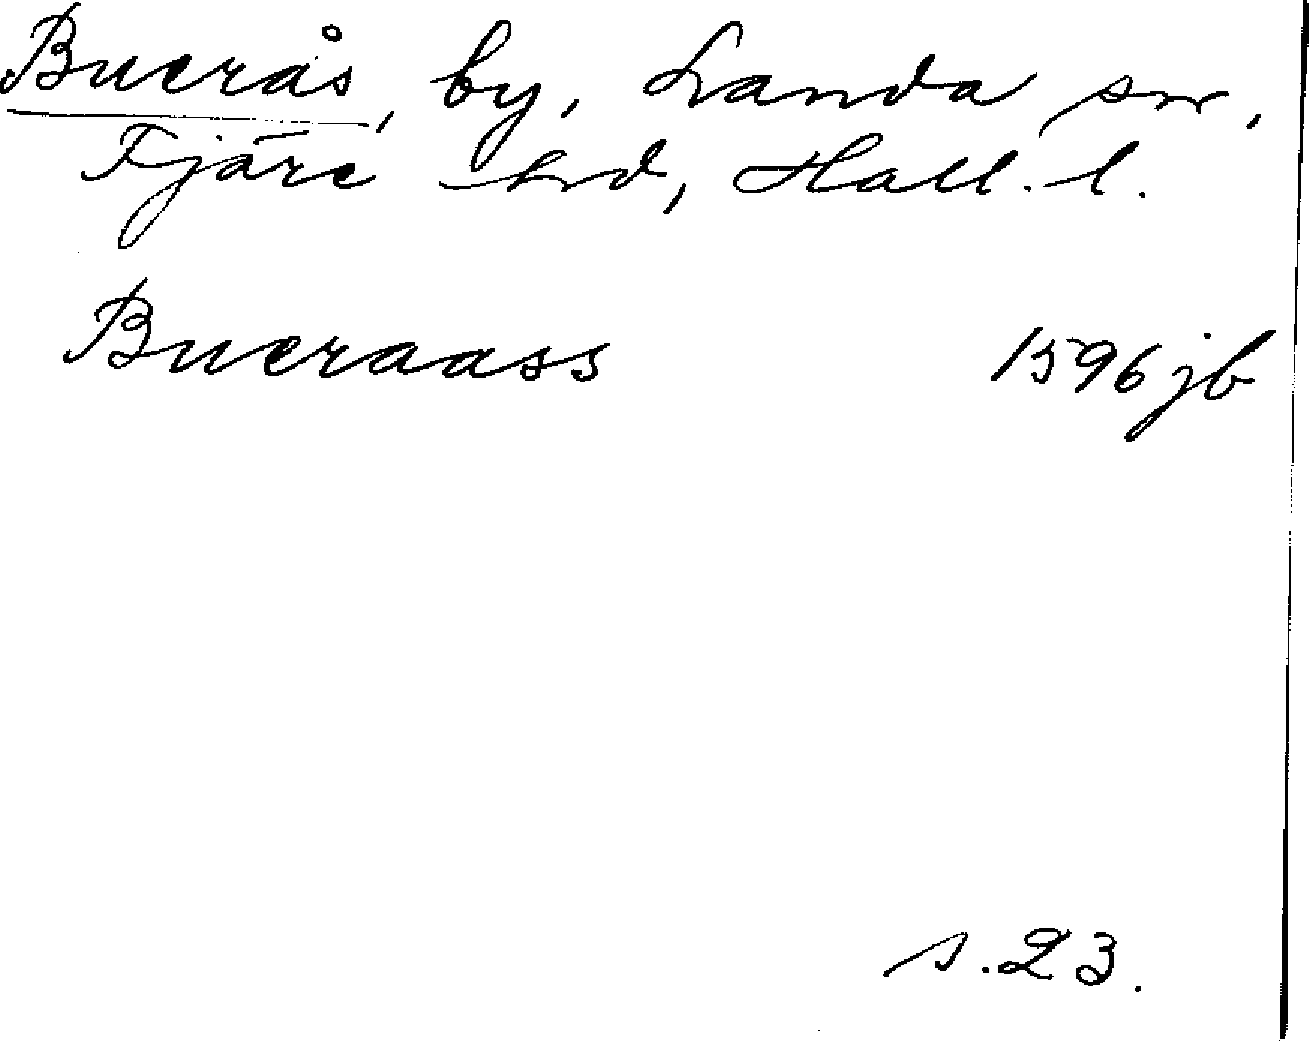 Buerås, by, Landa sn,
Fjäre hd, Hall. l.
Bueraass 1596 jb
s. 23.